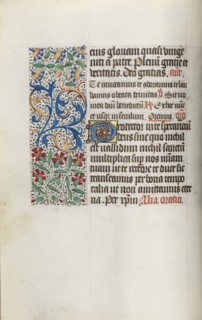 eius gloriam quasi unige
niti a patre. Plenū gracie et
veritatis. Deo gratias. añe.
Te invocamus te adoramus te lau
damus o beata trinitas. Sit no
men dñi benedictū. Ex hoc nūc
et usqz in seculum. Oremus. oro
Protector in te sperantiū
deus sine quo nichil
est validum nichil sanctū
multiplica sup nos miam
tuam ut te rectore te duce sic
transeamus per bona tempo
ralia ut non amittamus eter
na. Per xp̄m Alia oratio.